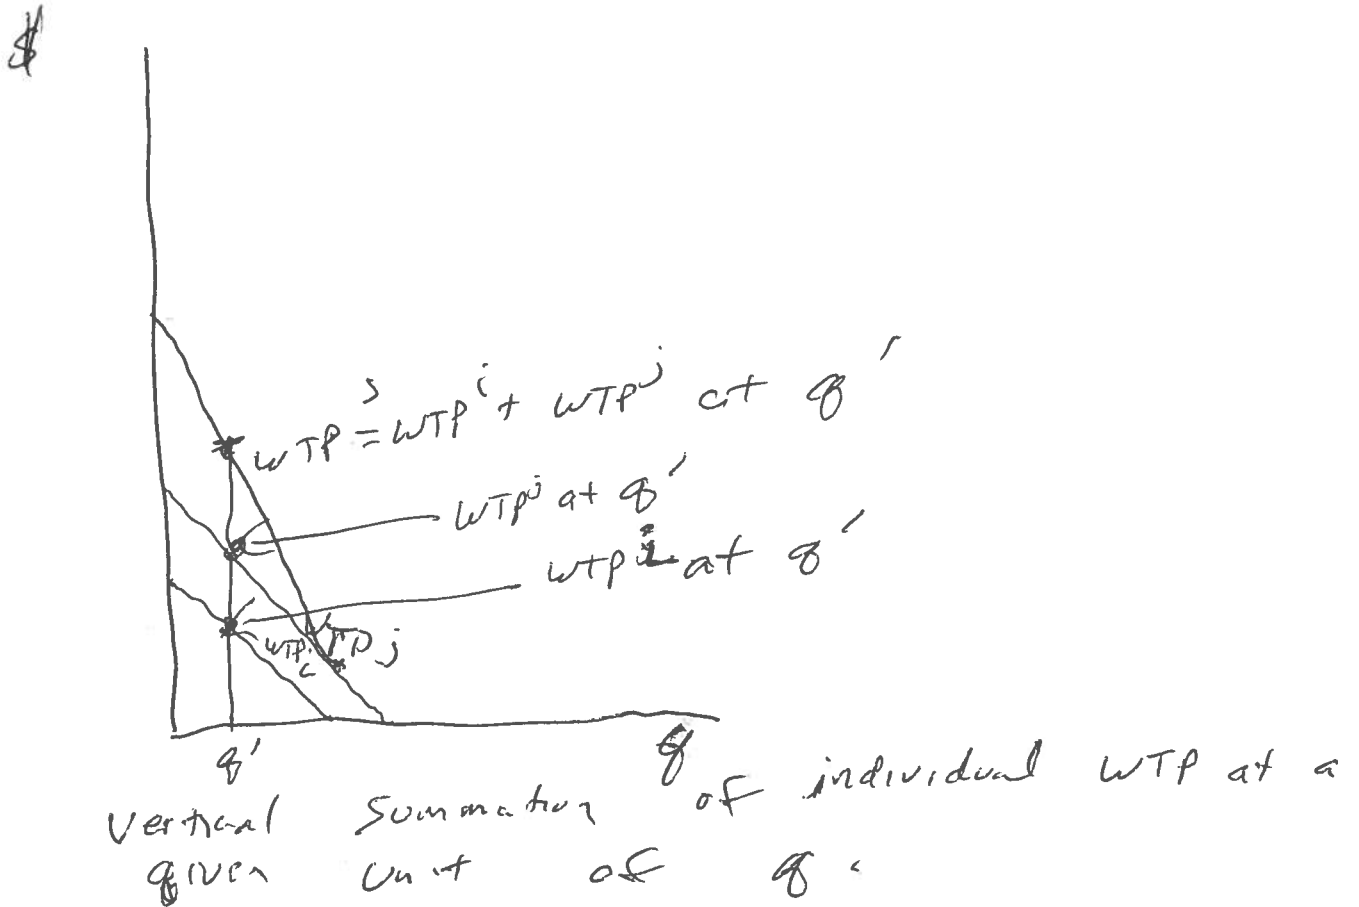 $
WTP^s = WTP^i + WTP^j at q'
WTP^j at q'
WTP^i at q'
WTP_i
WTP_j
q'
q
Vertical Summation of individual WTP at a
given unit of q.